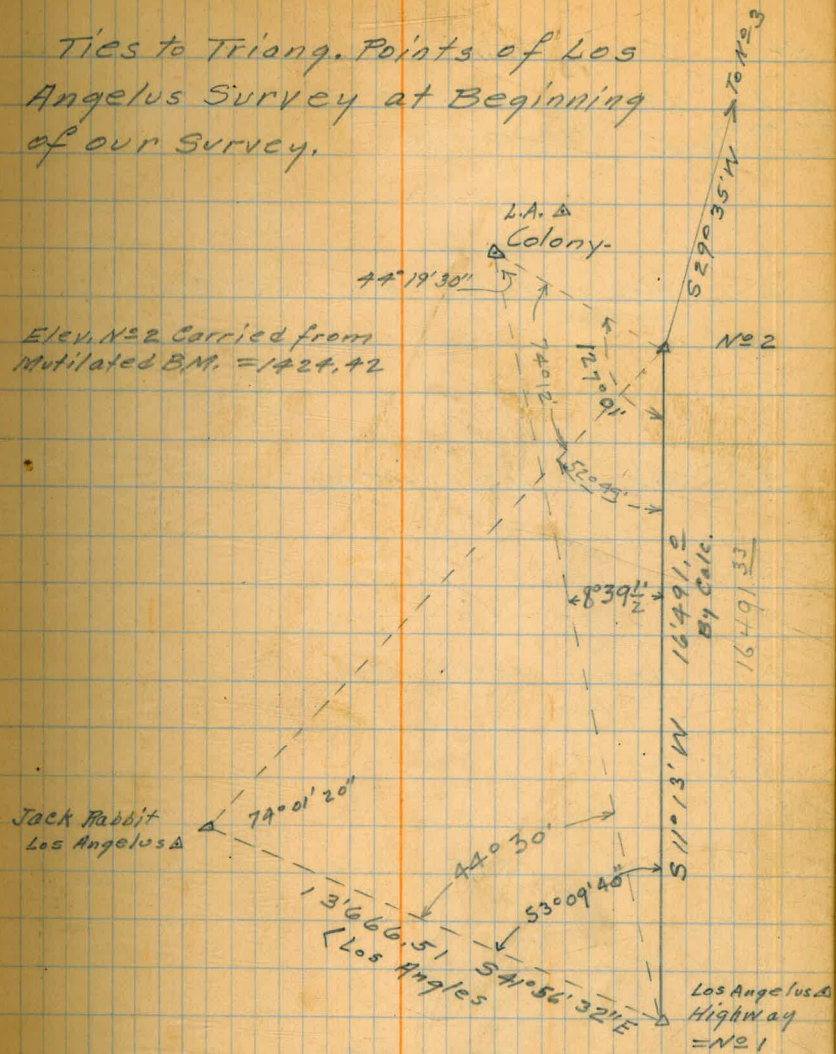 Ties to Triang. Points of Los
Angelus Survey at Beginning
of our Survey.
To No 3
S 29° 35' W
L.A. △
Colony
44° 19' 30"
Elev. No 2 Carried from
Mutilated B.M. = 1424.42
No 2
74° 12'
127° 01'
52° 49'
8° 39 1/2'
16'491.0
By Calc.
16491 33
S 11° 13' W
Jack Rabbit
Los Angelus △
74° 01' 20"
44° 30'
53° 09' 40"
13'666.51
(Los Angles
S 41° 56' 32" E
Los Angelus △
Highway
= No 1